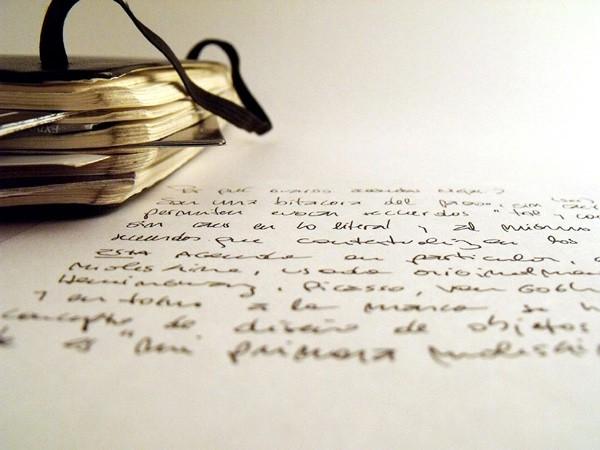 por guardar agendas viejas?
Son una bitacora del pasado, (sin
permiten evocar recuerdos "tal y co
sin caos en lo literal y al mismo
recuerdos que contextualizan los
ESTA Agenda en particular,
Moleskine, usada originalmen
Hemingway, Picasso Van Gogh
y en torno a la marca se h
concepto de diseño de objetos
es "mi primera moleskin